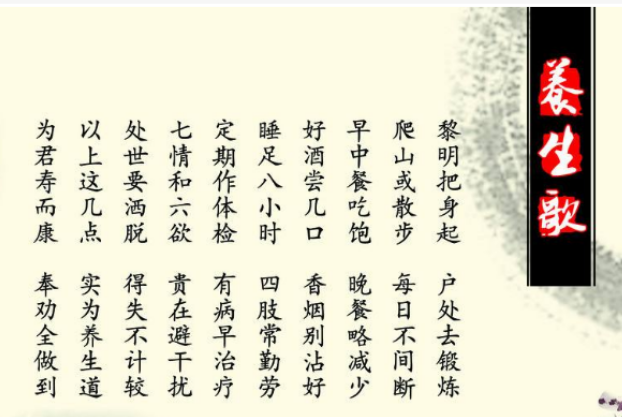 養生歌
黎明把身起 户处去锻炼
爬山或散步 每日不间断
早中餐吃饱 晚餐略减少
好酒尝几口 香烟别沾好
睡足八小时 四肢常勤劳
定期作体检 有病早治疗
七情和六欲 贵在避干扰
处世要洒脱 得失不计较
以上这几点 实为养生道
为君寿而康 奉劝全做到